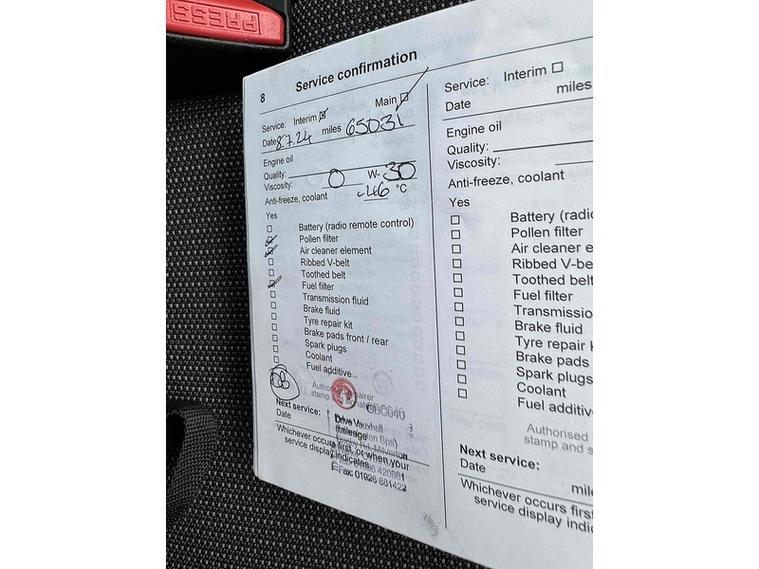 PRESS
8 Service confirmation
Service: Interim Main
Date 8.7.24 miles 65031
Engine oil
Quality:
Viscosity: 0 W- 30
Anti-freeze, coolant -46 °C
Yes
Battery (radio remote control)
Pollen filter
Air cleaner element
Ribbed V-belt
Toothed belt
Fuel filter
Transmission fluid
Brake fluid
Tyre repair kit
Brake pads front / rear
Spark plugs
Coolant
Fuel additive
stamp
Next service:
Date
Drive Vauxhall
mileage
Whichever occurs first, or when your
service display indicates
Fax: 01926 881422
Service: Interim
Date miles
Engine oil
Quality:
Viscosity:
Anti-freeze, coolant
Yes
Battery (radio
Pollen filter
Air cleaner e
Ribbed V-be
Toothed belt
Fuel filter
Transmissio
Brake fluid
Tyre repair k
Brake pads
Spark plugs
Coolant
Fuel additiv
Authorised
stamp and s
Next service:
Date mile
Whichever occurs first
service display indic